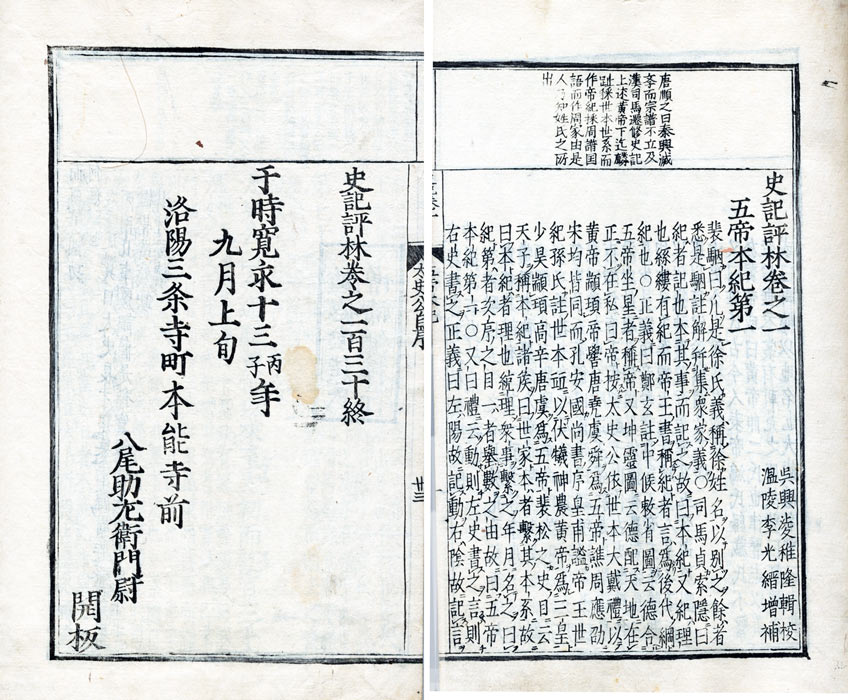 史記評林卷之一
吳興凌稚隆輯校
溫陵李光縉增補
五帝本紀第一
唐順之曰秦興滅
季而宗譜不立及
漢司馬遷修史記
上述黃帝下迄麟
趾採世本世系而
作帝紀採周譜国
語而作周家由是
人乃知姓氏之所
出
裴駰曰凡是徐氏義稱徐姓名以別之餘者
悉是駰註解并集衆家義○司馬貞索隱曰
紀者記也本其事而記之故曰本紀又紀理
也絲縷有紀而帝王書稱紀者言爲後代綱
紀也○正義曰鄭玄註中候敕省圖云德合
五帝坐星者稱帝又坤靈圖云德配天地在
正不在私曰帝按太史公依世本大戴禮以
黄帝顓頊帝嚳唐堯虞舜爲五帝譙周應劭
宋均皆同而孔安國尚書序皇甫謐帝王世
紀孫氏註世本並以伏犧神農黄帝爲三皇
少昊顓頊高辛唐虞爲五帝裴松之史目云
天子稱本紀諸侯曰世家本者繫其本系故
曰本紀者理也統理衆事繫之年月名之曰
紀第者次序之目一者舉數之由故曰五帝
本紀第一○又曰禮云動則左史書之言則
右史書之正義曰左陽故記動右陰故記言
史記評林巻之一百三十終
于時寛永十三丙子年
九月上旬
洛陽三条寺町本能寺前
八尾助左衛門尉
開板